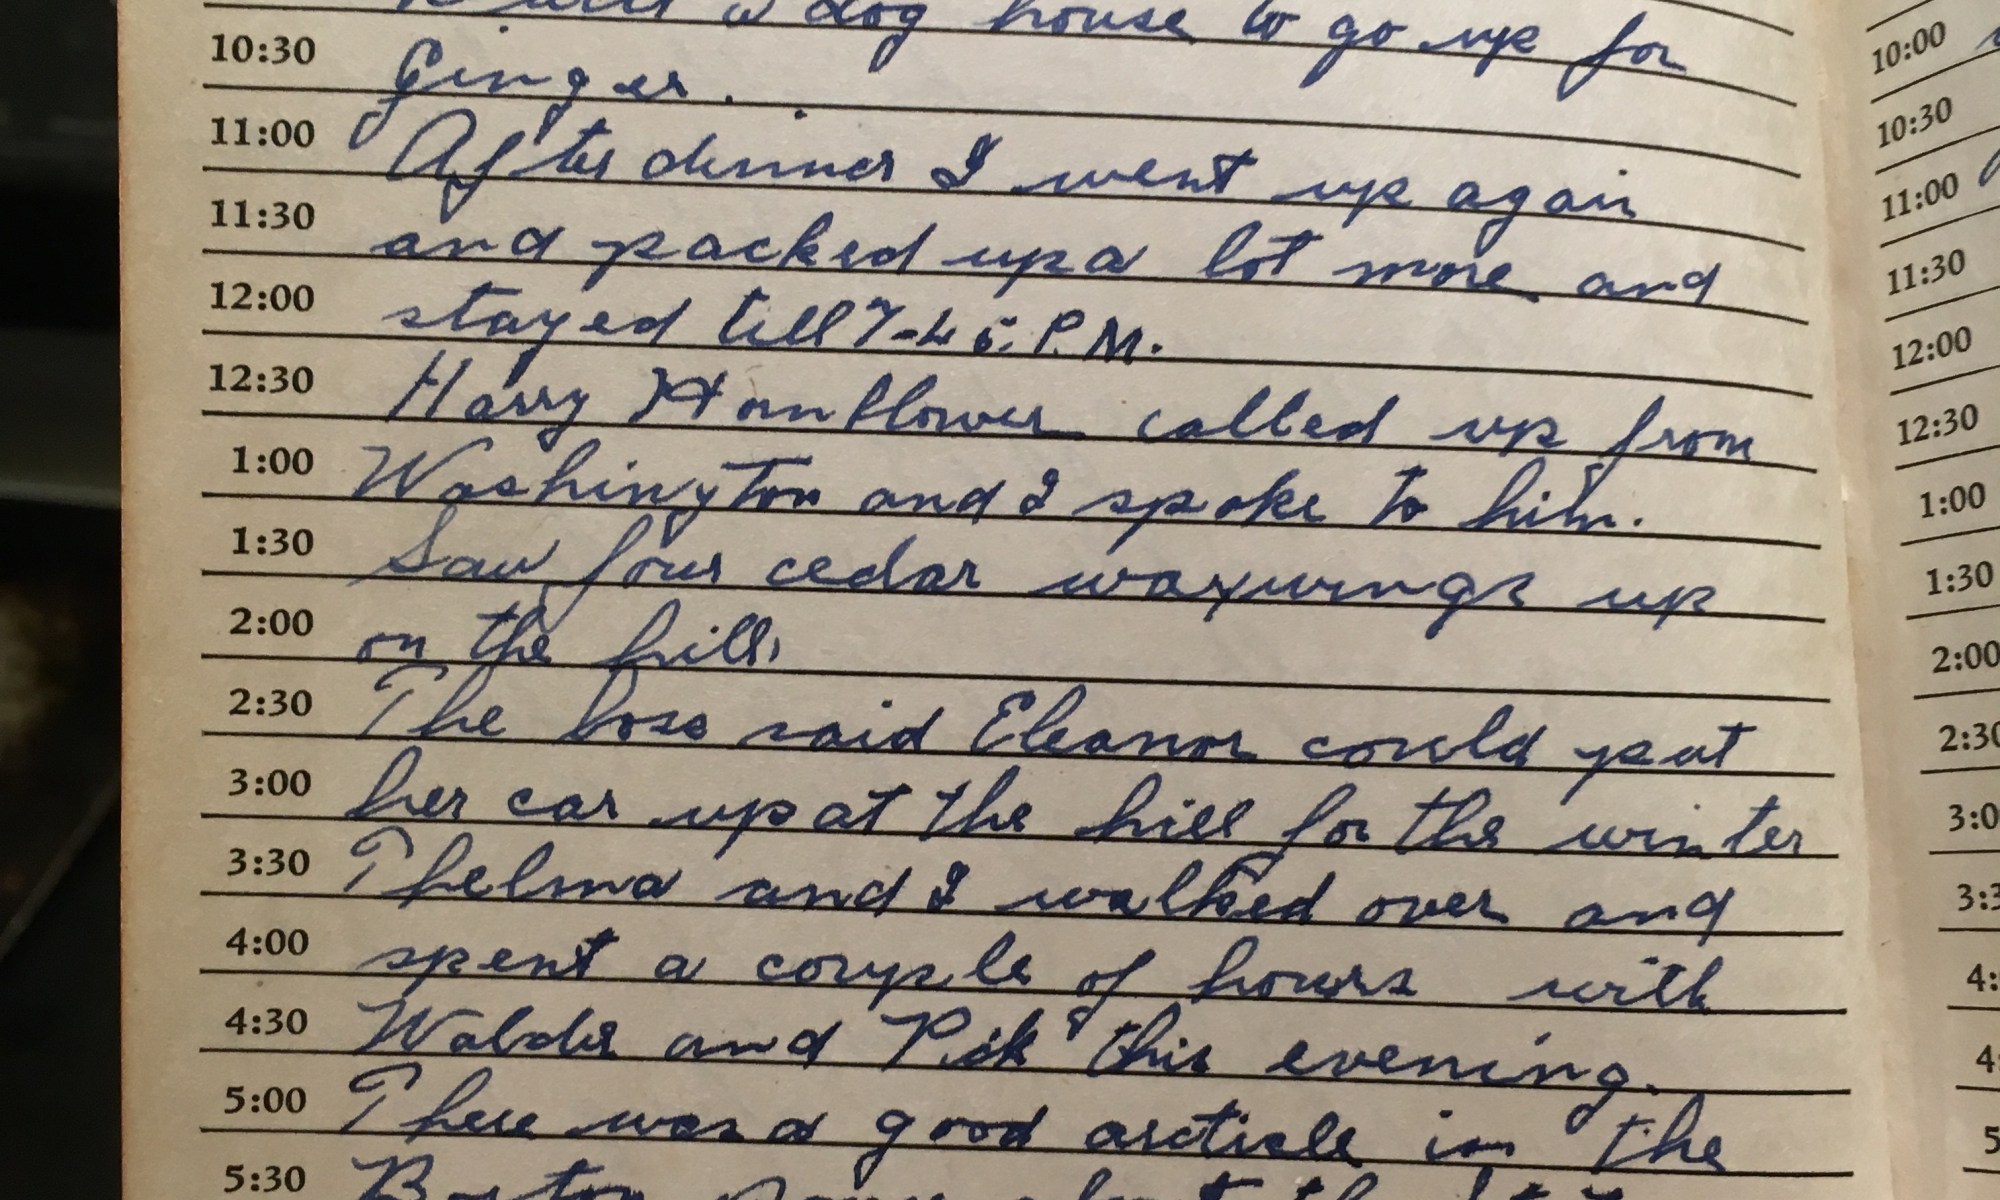 a dog house to go up for
10:30 Ginger.
11:00 After dinner I went up again
11:30 and packed up a lot more and
12:00 stayed till 7-45. P.M.
12:30 Harry called up from
1:00 Washington and I spoke to him.
1:30 Saw four cedar waxwings up
2:00 on the hill.
2:30 The boss said Eleanor could put
3:00 her car up at the hill for the winter
3:30 Thelma and I walked over and
4:00 spent a couple of hours with
4:30 and this evening.
5:00 There was a good article in the
5:30 Boston
10:00
10:30
11:00
11:30
12:00
12:30
1:00
1:30
2:00
2:30